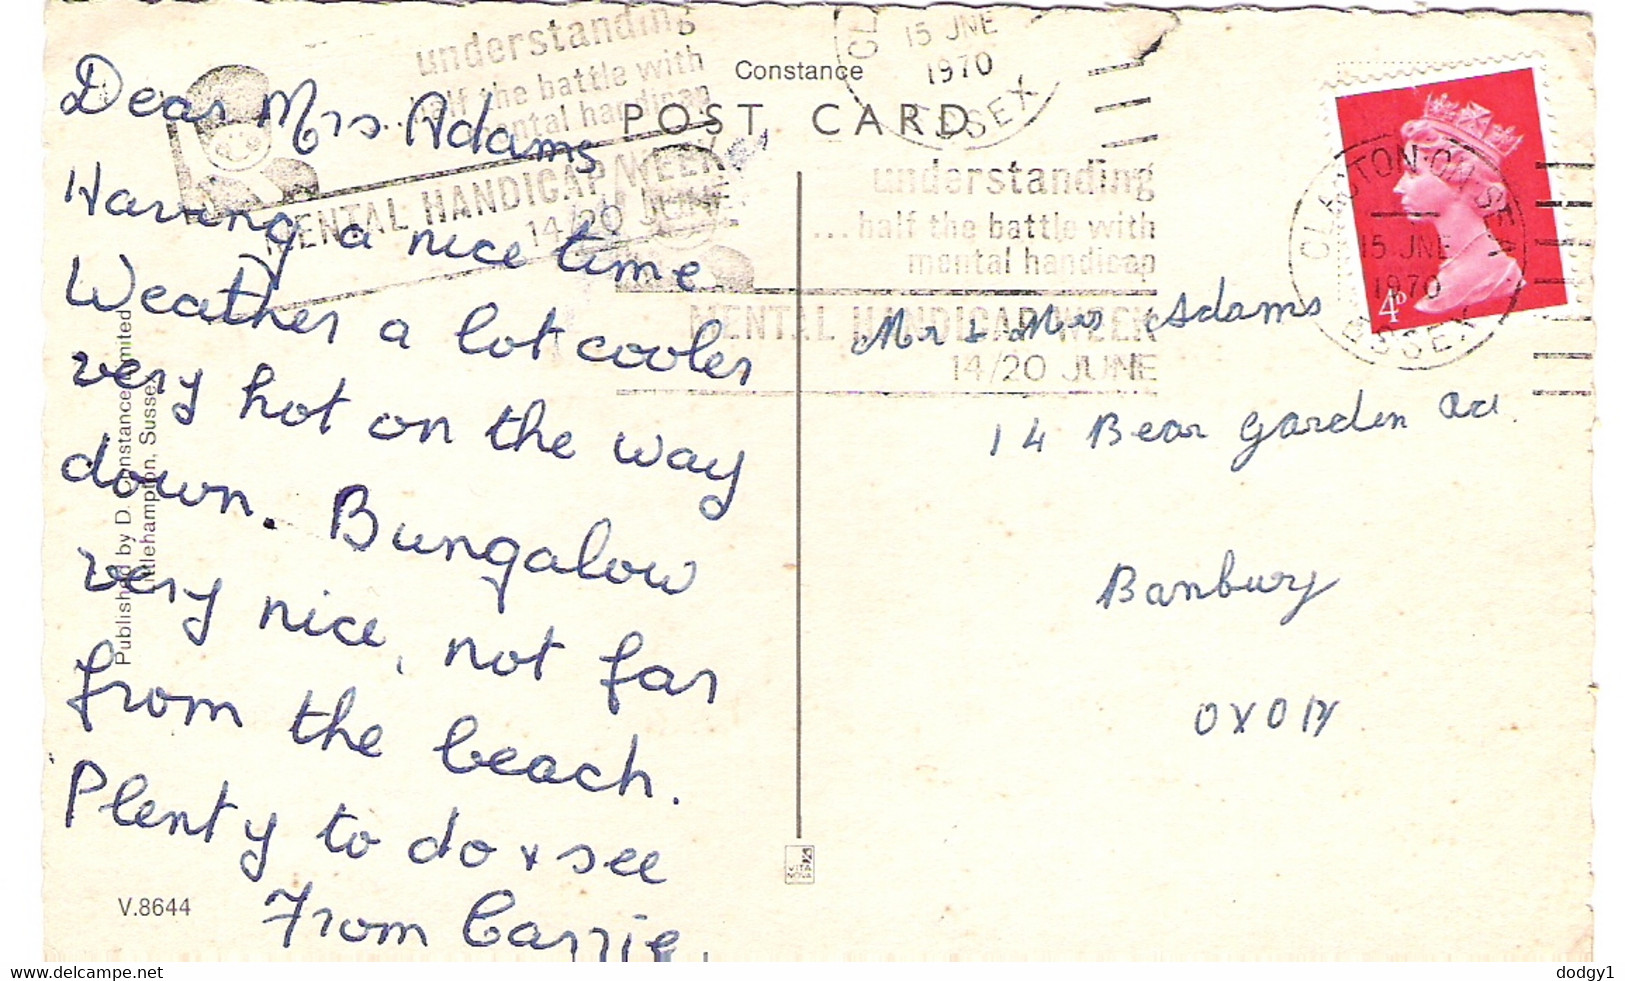 Dear Mrs. Adams
Having a nice time
Weather a lot cooler
very hot on the way
down. Bungalow
very nice, not far
from the beach.
Plenty to do & see
From Carrie.
V.8644
Published by D. Constance Limited
Littlehampton, Sussex
Constance
POST CARD
understanding
half the battle with
mental handicap
MENTAL HANDICAP WEEK
14/20 JUNE
15 JNE
1970
ESSEX
understanding
... half the battle with
mental handicap
MENTAL HANDICAP WEEK
14/20 JUNE
CLACTON-ON-SEA
15 JNE
1970
ESSEX
4D
Mr & Mrs Adams
14 Bear Garden Rd.
Banbury
OXON
VITA
NOVA
www.delcampe.net
dodgy1